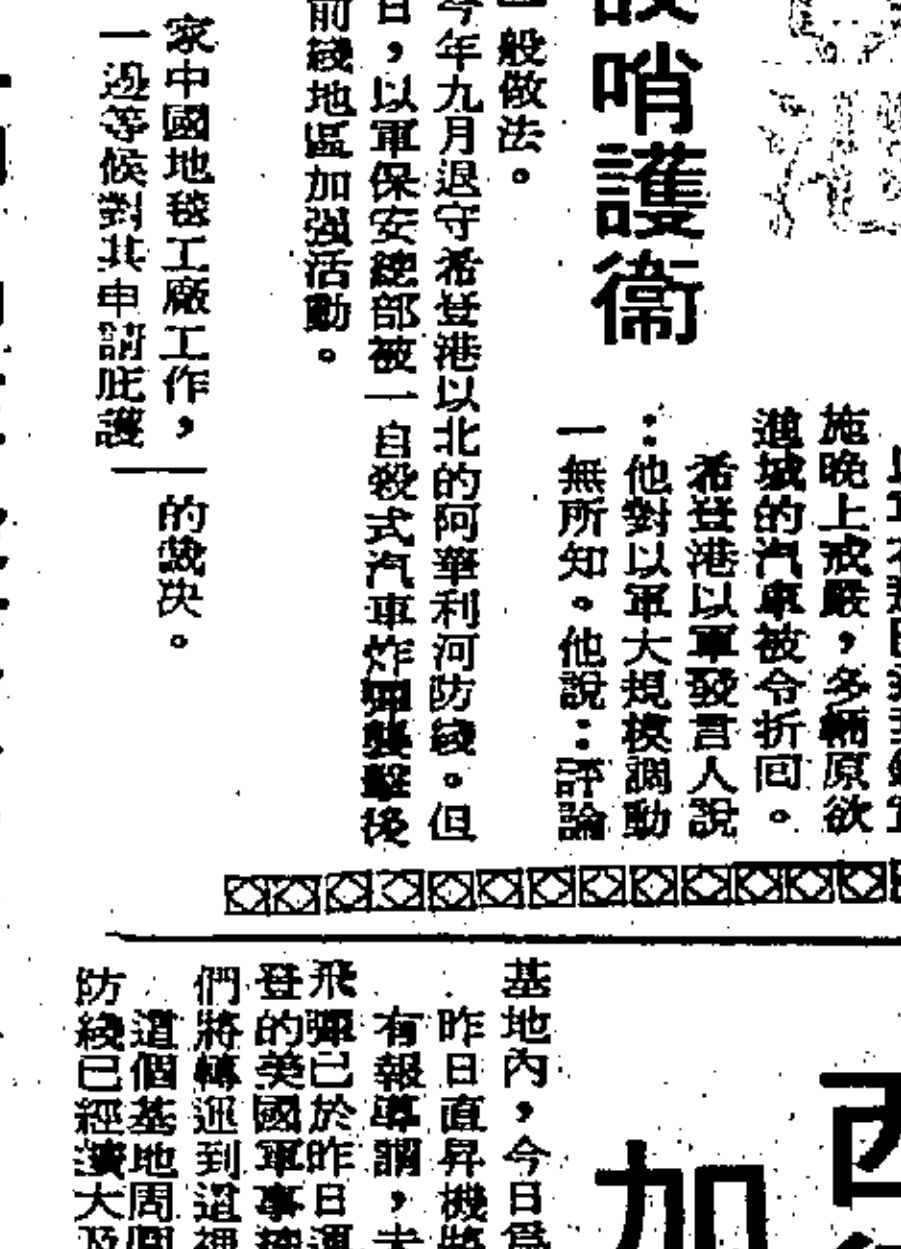 哨護衞
施晚上戒嚴，多輛原欲
進城的汽車被令折回。
希登港以軍發言人說
：他對以軍大規模調動
一無所知。他說：評論
般做法。
今年九月退守希登港以北的阿華利河防綫。但
日，以軍保安總部被一自殺式汽車炸彈襲擊後
前綫地區加强活動。
家中國地毯工廠工作，
一邊等候對其申請庇護
的裁決。
加
基地內，今日爲
昨日直昇機將
有報導謂，未
飛彈已於昨日運
登的美國軍事
們將轉運到這裡
這個基地周圍
防綫已經擴大及